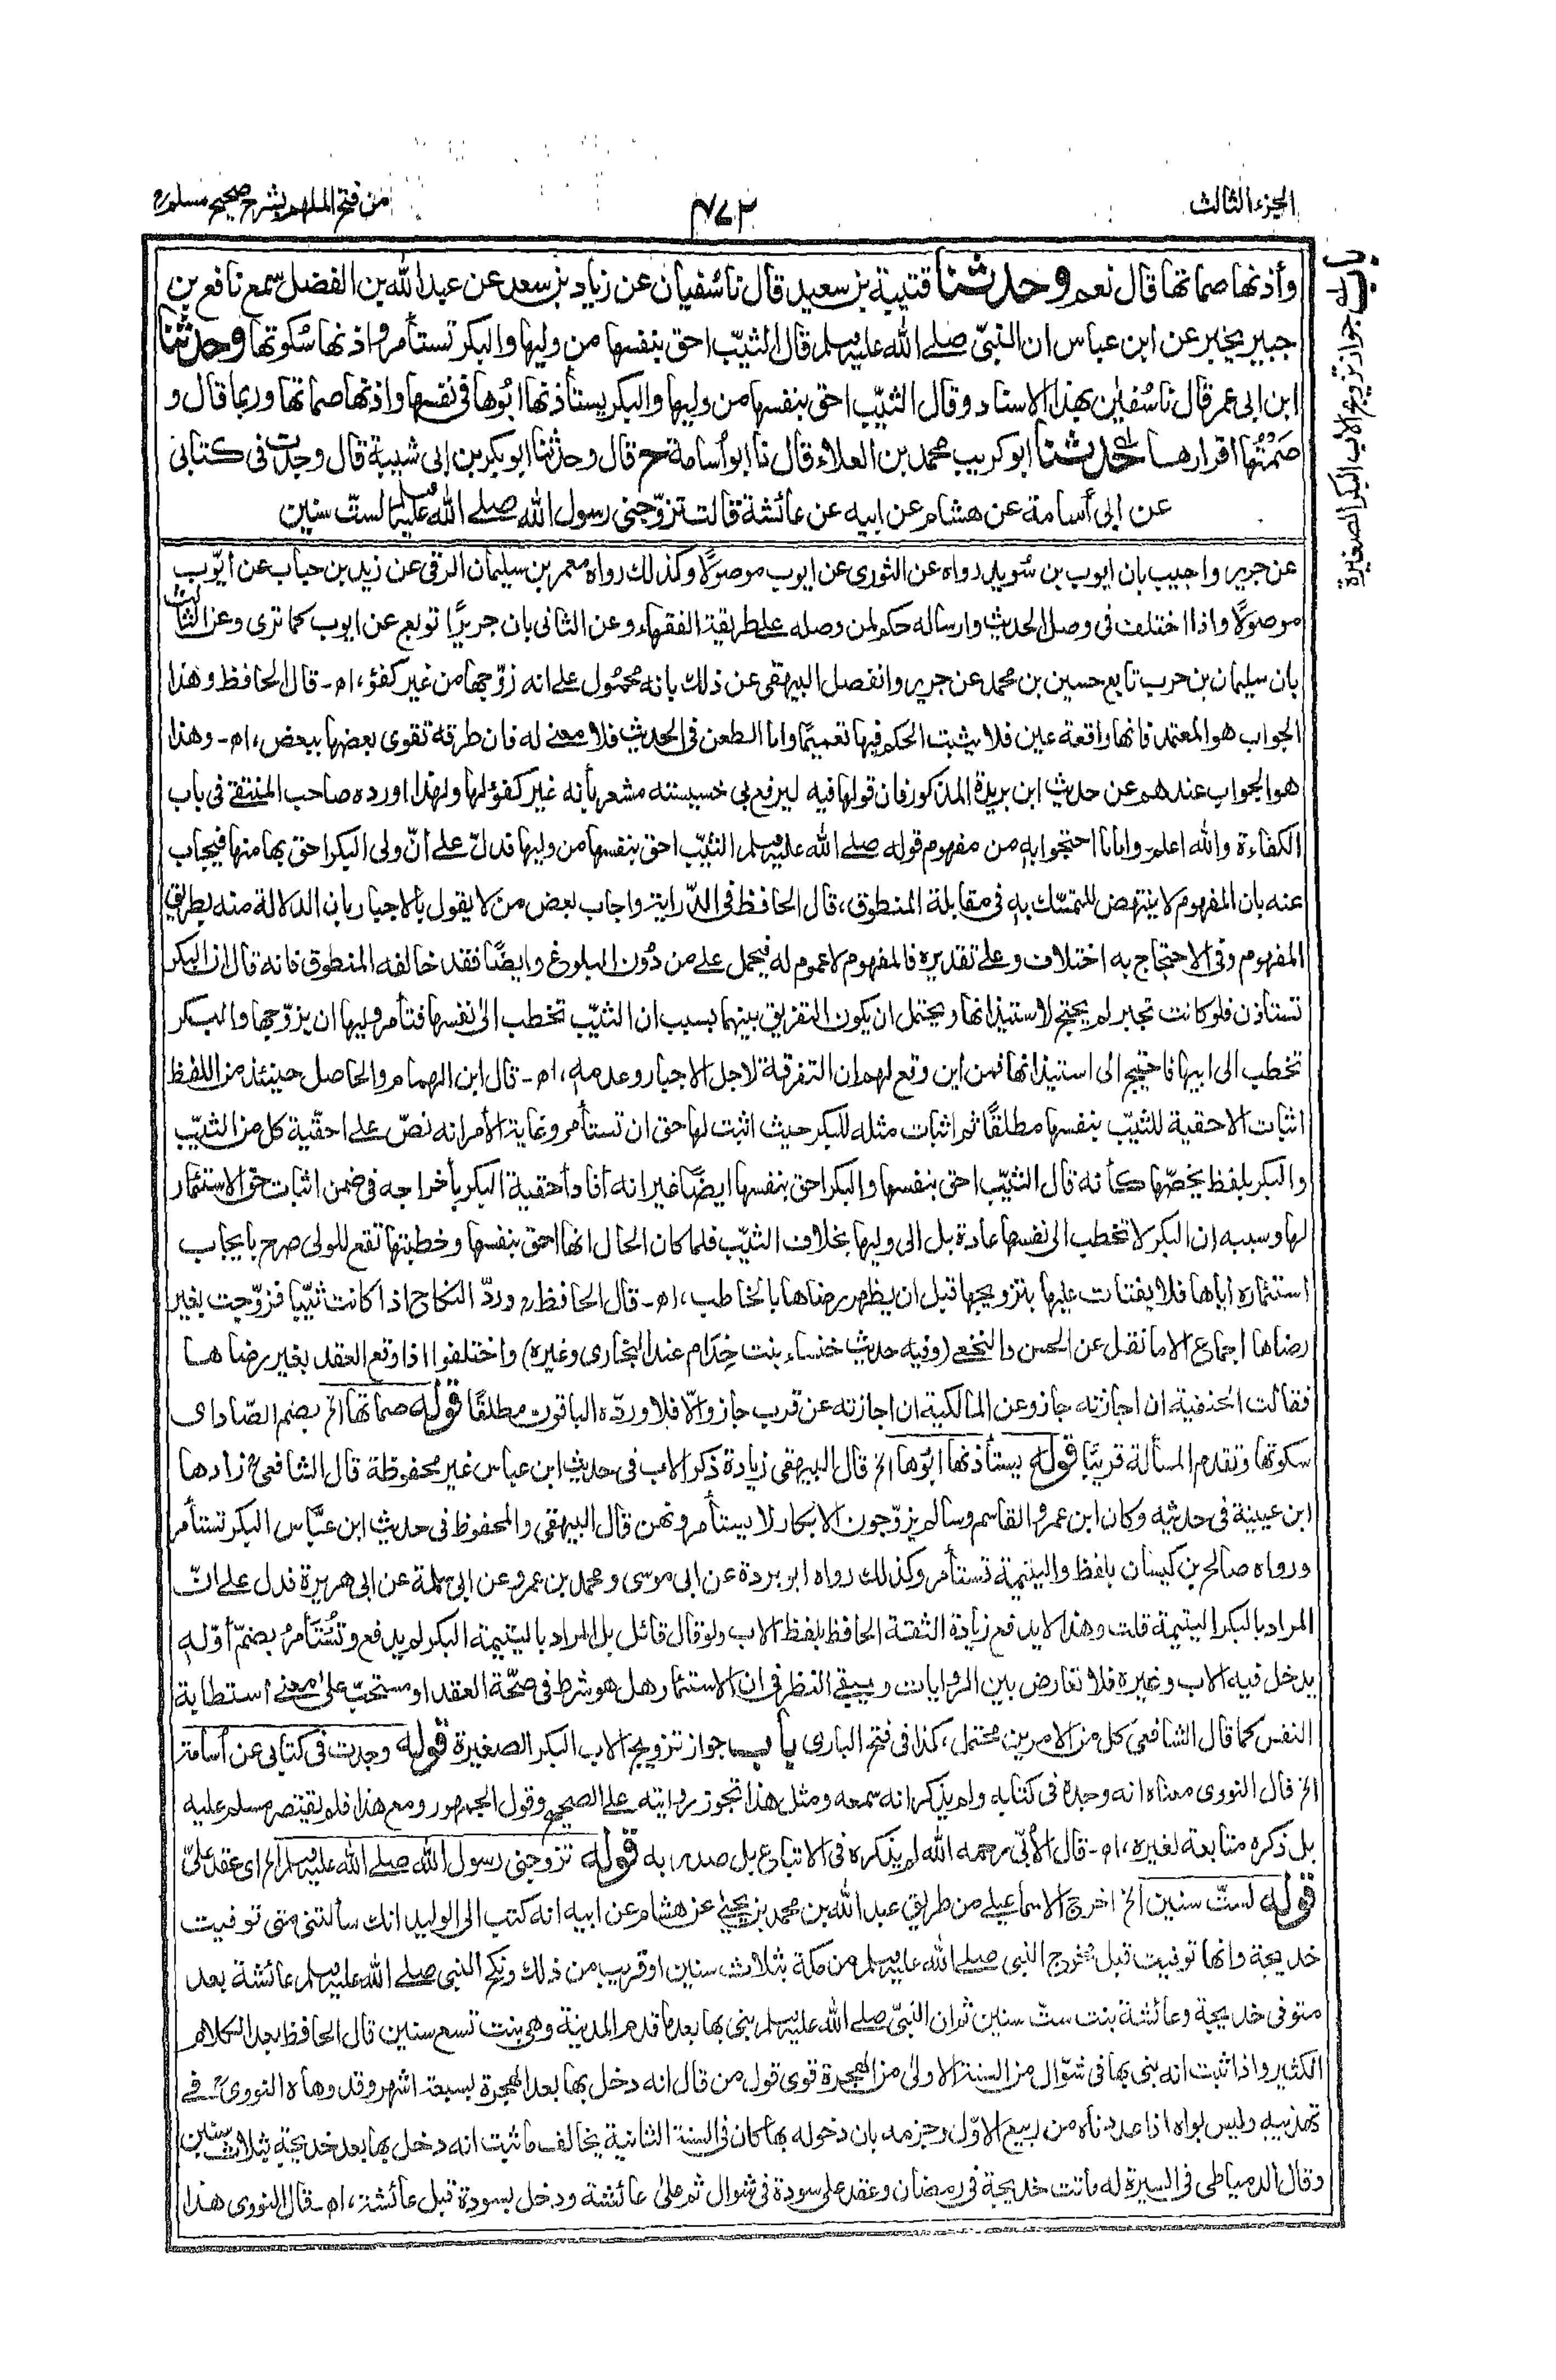 الجزء الثالث
٤٧٢
من فتح الملهم بشرح صحيح مسلم
باب جواز تزويج الاب البكر الصغيرة
وأذنها صماتها قال نعم وحدثنا قتيبة بن سعيد قال نا سفيان عن زياد بن سعد عن عبد الله بن الفضل سمع نافع بن
جبير يخبر عن ابن عباس ان النبيّ صلے الله عليه وسلم قال الثيّب احق بنفسها من وليها والبكر تستأمر واذنها سُكوتها وحدثنا
ابن ابى عمر قال نا سُفيٰن بهذا الاسناد وقال الثيّب احق بنفسها من وليها والبكر يستأذنها ابُوها فى نفسها واذنها صماتها وربما قال و
صَمْتُها اقرارها حدثنا ابو كريب محمد بن العلاء قال نا ابو اُسامة ح قال وحدثنا ابو بكر بن ابى شيبة قال وجدت فى كتابى
عن ابى أسامة عن هشام عن ابيه عن عائشة قالت تزوّجنى رسول الله صلے الله عليه وسلم لستّ سنين
عن جرير واجيب بان ايوب بن سُويد رواه عن الثورى عن ايوب موصولًا وكذلك رواه معمر بن سليمان الرقى عن زيد بن حباب عن ايّوب
موصولًا واذا اختلف فى وصل الحديث وارساله حكم لمن وصله علے طريقة الفقهاء وعن الثانى بان جريرًا توبع عن ايوب كما ترى وعن الثالث
بان سليمان بن حرب تابع حسين بن محمد عن جرير وانفصل البيهقى عن ذلك بانه محمُول علے انه زوّجها من غير كفؤ، اھ۔ قال الحافظ وهذا
الجواب هو المعتمد فانها واقعة عين فلا يثبت الحكم فيها تعميمًا واما الطعن فى الحديث فلا معنے له فان طرقه تقوى بعضها ببعض، اھ۔ وهذا
هو الجواب عندهم عن حديث ابن بريدة المذكور فان قولها فيه ليرفع بى خسيسته مشعر بأنه غير كفؤ لها ولهذا اورده صاحب المنتقے فى باب
الكفاءة والله اعلم۔ واما ما احتجوا به من مفهوم قوله صلے الله عليه وسلم الثيّب احق بنفسها من وليها فدلّ علے انّ ولى البكر احق بها منها فيجاب
عنه بان المفهوم لا ينتهض للتمسّك به فى مقابلة المنطوق، قال الحافظ فى الدّراية واجاب بعض من لا يقول بالاجبار بان الدلالة منه بطريق
المفهوم وفى الاحتجاج به اختلاف وعلے تقديره فالمفهوم لا عموم له فيحمل علے من دُون البلوغ وايضًا فقد خالفه المنطوق فانه قال ان البكر
تستأذن فلو كانت تجبر لم يحتج لاستيذانها ويحتمل ان يكون التفريق بينهما بسبب ان الثيّب تخطب الى نفسها فتأمر وليها ان يزوّجها والبكر
تخطب الى ابيها فاحتيج الى استيذانها فمن اين وقع لهم ان التفرقة لاجل الاجبار وعدمه، اھ۔ قال ابن الهمام والحاصل حينئذ من اللفظ
اثبات الاحقية للثيّب بنفسها مطلقًا ثم اثبات مثله للبكر حيث اثبت لها حق ان تستأمر وغاية الأمر انه نصّ علے احقّية كل من الثيّب
والبكر بلفظ يخصّها كأنه قال الثيّب احق بنفسها والبكر احق بنفسها ايضًا غير انه أفاد أحقية البكر بأخراجه فى ضمن اثبات حق الاستئمار
لها وسببه ان البكر لا تخطب الى نفسها عادة بل الى وليها بخلاف الثيّب فلما كان الحال انها احق بنفسها وخطبتها تقع للولى صرح بايجاب
استئماره اياها فلا يفتات عليها بتزويجها قبل ان يظهر رضاها بالخاطب، اھ۔ قال الحافظ وردّ النكاح اذا كانت ثيّبا فزوّجت بغير
رضاها اجماع الا ما نقل عن الحسن والنخعے (وفيه حديث خنساء بنت خِذَام عند البخارى وغيره) واختلفوا اذا وقع العقد بغير رضاها
فقالت الحنفية ان اجازته جاز وعن المالكية ان اجازته عن قرب جاز والّا فلا وردّه الباقون مطلقًا قوله صماتها الخ بضم الصّاد اى
سكوتها وتقدم المسألة قريبًا قوله يستأذنها ابُوها الخ قال البيهقى زيادة ذكر الاب فى حديث ابن عباس غير محفوظة قال الشافعىؒ زادها
ابن عيينة فى حديثه وكان ابن عمر والقاسم وسالم يزوّجون الابكار لا يستأمرونهن قال البيهقى والمحفوظ فى حديث ابن عبّاس البكر تستأمر
ورواه صالح بن كيسان بلفظ واليتيمة تستأمر وكذلك رواه ابو بردة عن ابى موسى ومحمد بن عمرو عن ابى سلمة عن ابى هريرة فدل علے انّ
المراد بالبكر اليتيمة قلت وهذا لا يدفع زيادة الثقة الحافظ بلفظ الاب ولو قال قائل بل المراد باليتيمة البكر لم يدفع وتُسْتَأمرُ بضمّ أوّله
يدخل فيه الاب وغيره فلا تعارض بين الروايات ويبقے النظر فى ان الاستئمار هل هو شرط فى صحّة العقد او مستحبّ على معنے استطابة
النفس كما قال الشافعى كل من الامرين محتمل، كذا فى فتح البارى باب جواز تزويج الاب البكر الصغيرة قوله وجدت فى كتابى عن أسامة
الخ قال النووى معناه انه وجده فى كتابه ولم يذكر انه سمعه ومثل هذا تجوز روايته علے الصحيح وقول الجمهور ومع هذا فلم يقتصر مسلم عليه
بل ذكره متابعة لغيره، اھ۔ قال الأبّى رحمه الله لم يذكره فى الاتباع بل صدر به قوله تزوجنى رسول الله صلے الله عليه وسلم الخ اى عقد علىّ
قوله لستّ سنين الخ اخرج الاسماعيلے من طريق عبد الله بن محمد بن يحيٰى عن هشام عن ابيه انه كتب الى الوليد انك سألتنى متى توفيت
خديجة وانها توفيت قبل مخرج النبى صلے الله عليه وسلم من مكة بثلاث سنين او قريب من ذلك ونكح النبى صلے الله عليه وسلم عائشة بعد
متوفى خديجة وعائشة بنت ستّ سنين ثم ان النبىّ صلے الله عليه وسلم بنى بها بعد ما قدم المدينة وهى بنت تسع سنين قال الحافظ بعد الكلام
الكثير واذا ثبت انه بنى بها فى شوّال من السنة الاولى من الهجرة قوى قول من قال انه دخل بها بعد الهجرة بسبعة اشهر وقد وهاه النووىؒ فے
تهذيبه وليس بواه اذا عددناه من ربيع الاوّل وجزمه بان دخوله بها كان فى السنة الثانية يخالف ما ثبت انه دخل بها بعد خديجة بثلاث سنين
وقال الدمياطى فى السيرة له ماتت خديجة فى رمضان وعقد على سودة فى شوال ثم على عائشة ودخل بسودة قبل عائشة، اھ۔ قال النووى هذا